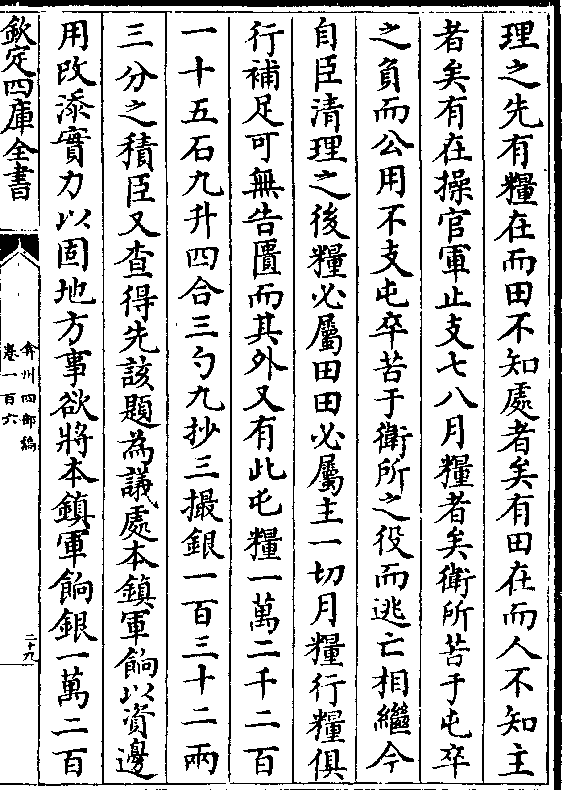 理之先有糧在而田不知處者矣有田在而人不知主
者矣有在操官軍止支七八月糧者矣衛所苦于屯卒
之負而公用不支屯卒苦于衛所之役而逃亡相繼今
自臣清理之後糧必屬田田必屬主一切月糧行糧俱
行補足可無告匱而其外又有此屯糧一萬二千二百
一十五石九升四合三勺九抄三撮銀一百三十二兩
三分之積臣又查得先該題為議處本鎮軍餉以資邊
用改添實力以固地方事欲將本鎮軍餉銀一萬二百
欽定四庫全書
弇州四部稿
卷一百六
二十九